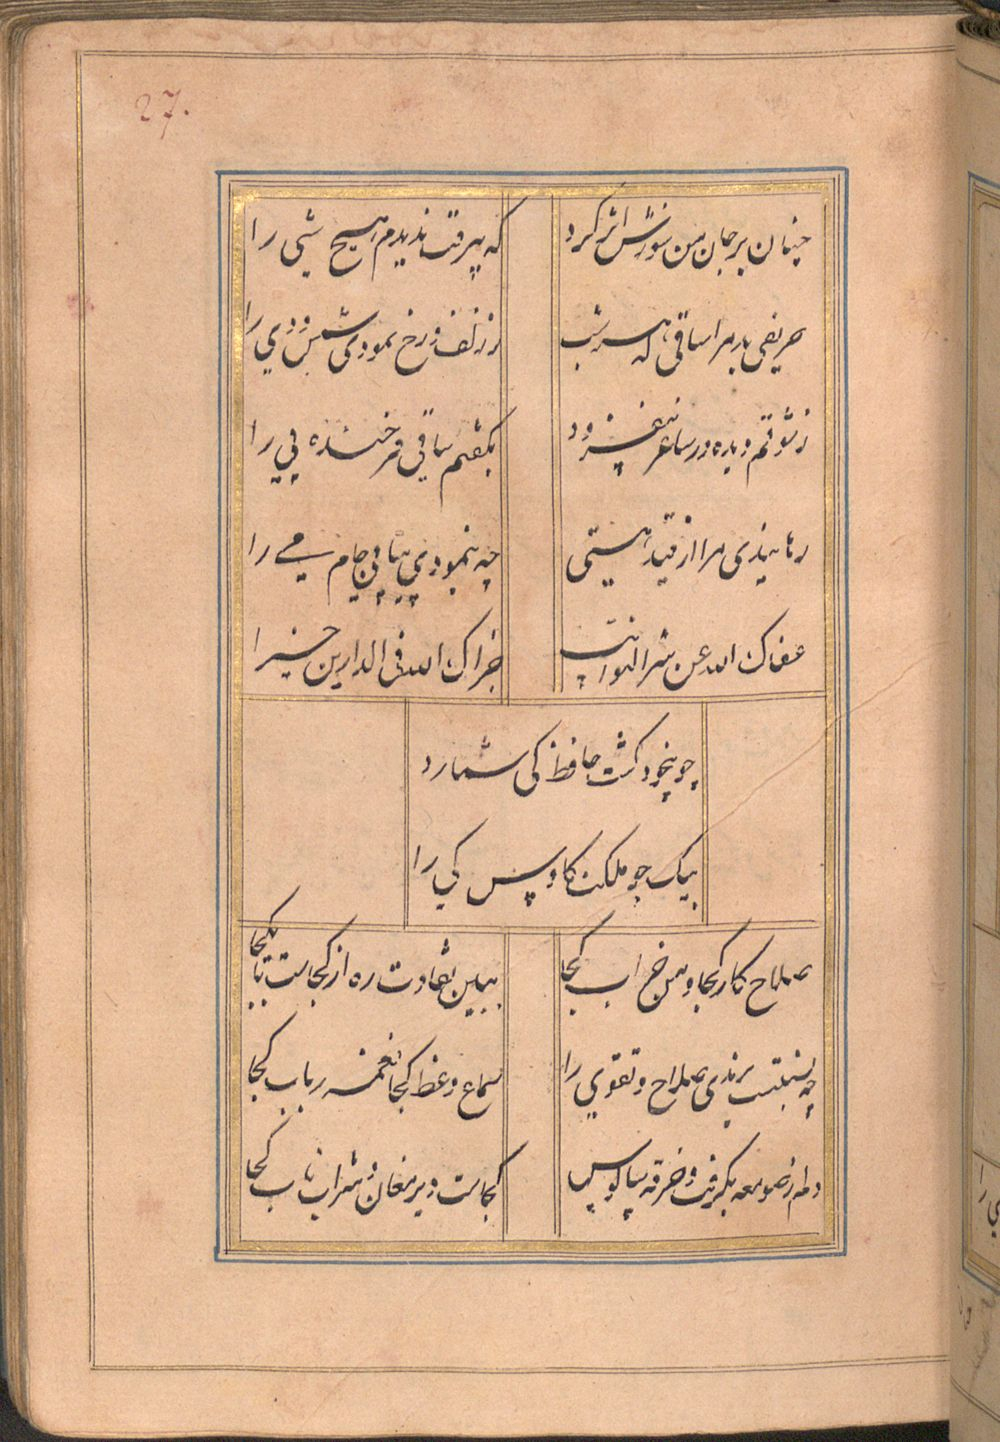 27.
چنان بر جان من سوزش اثر کرد
که بیرقت ندیدم هیچ شی را
حریفی بد مرا ساقی که هر شب
ز زلف و رخ نمودی شمس و دی را
ز شوقم باده در ساغر نیفزود
بگفتم ساقی فرخنده پی را
رهانیدی مرا از قید هستی
چه پیمودی پیاپی جام می را
عفاک الله عن شر النوائب
جزاک الله فی الدارین خیرا
چو بیخود گشت حافظ کی شمارد
بیک جو ملکت کاوس کی را
صلاح کار کجا و من خراب کجا
ببین تفاوت ره از کجاست تا بکجا
چه نسبتست برندی صلاح و تقوی را
سماع وعظ کجا نغمه رباب کجا
دلم ز صومعه بگرفت و خرقه سالوس
کجاست دیر مغان و شراب ناب کجا